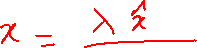 x = λ x̂